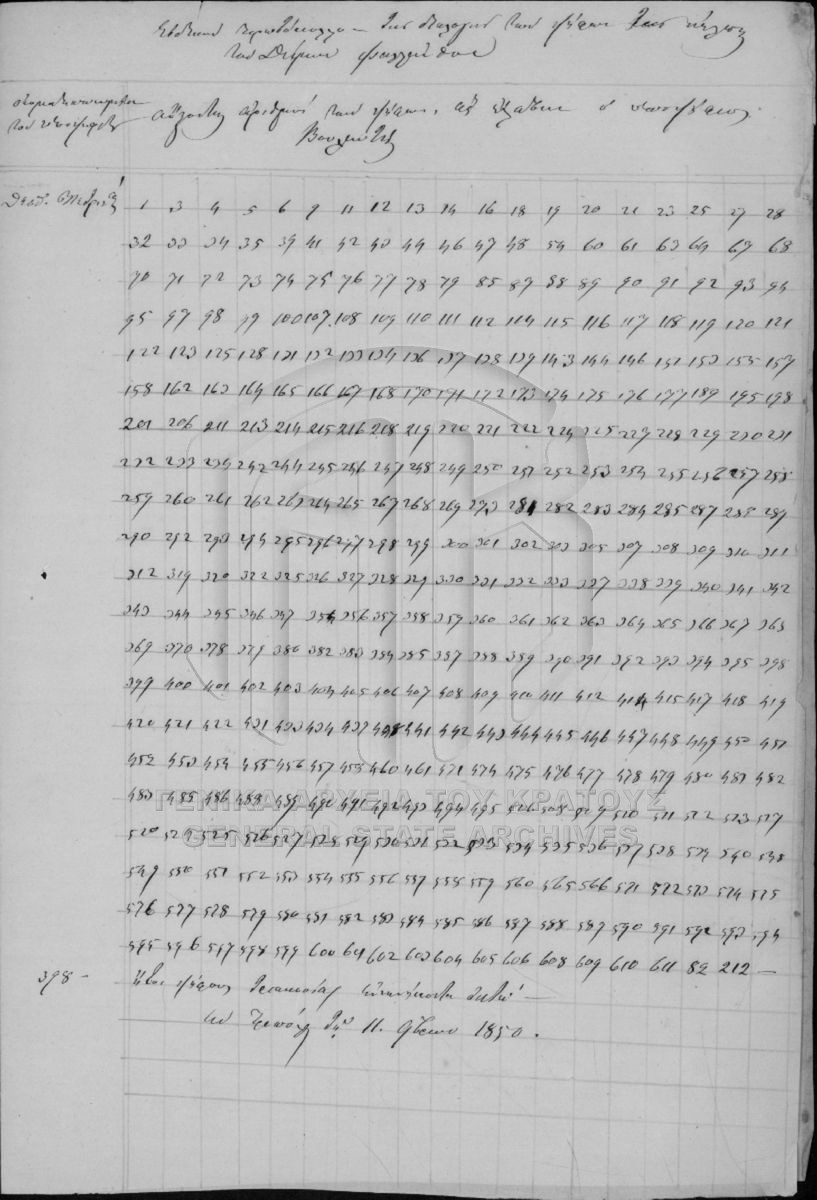 Ειδικόν πρωτόκολλον της διαλογής των ψήφων της κάλπης
του Δήμου Φαλλάνθου
του υποψηφίου
αύξοντες αριθμοί των ψήφων, ας έλαβεν ο υποψήφιος
Βουλευτής
1 3 4 5 6 9 11 12 13 14 16 18 19 20 21 23 25 27 28
32 33 34 35 39 41 42 43 44 46 47 48 54 60 61 63 64 67 68
70 71 72 73 74 75 76 77 78 79 85 87 88 89 90 91 92 93 94
95 97 98 99 100 107 108 109 110 111 112 114 115 116 117 118 119 120 121
122 123 125 128 131 132 133 134 136 137 138 139 143 144 146 152 153 155 157
158 162 163 164 165 166 167 168 170 171 172 173 174 175 176 177 189 195 198
201 206 211 213 214 215 216 218 219 220 221 222 224 225 227 228 229 230 231
232 233 234 242 244 245 246 247 248 249 250 251 252 253 254 255 256 257 258
259 260 261 262 263 264 265 267 268 269 273 281 282 283 284 285 287 288 289
290 292 293 294 295 296 297 298 299 300 301 302 303 305 307 308 309 310 311
312 319 320 322 325 326 327 328 329 330 331 332 333 337 338 339 340 341 342
343 344 345 346 347 354 356 357 358 359 360 361 362 363 364 365 366 367 368
369 370 378 379 380 382 383 384 385 387 388 389 390 391 392 393 394 395 398
399 400 401 402 403 404 405 406 407 408 409 410 411 412 414 415 417 418 419
420 421 422 431 433 434 437 438 441 442 443 444 445 446 447 448 449 450 451
452 453 454 455 456 457 458 460 461 471 474 475 476 477 478 479 480 481 482
483 485 486 488 489 490 491 492 493 494 495 506 508 509 510 511 512 513 517
520 524 525 526 527 528 529 530 531 532 533 534 535 536 537 538 539 540 548
549 550 551 552 553 554 555 556 557 558 559 560 565 566 571 572 573 574 575
576 577 578 579 580 581 582 583 584 585 586 587 588 589 590 591 592 593 594
595 596 597 598 599 600 601 602 603 604 605 606 608 609 610 611 82 212 —
398 — ήτοι ψήφους τριακοσίας ενενήκοντα οκτώ —
11 1850.
ΓΕΝΙΚΑ ΑΡΧΕΙΑ ΤΟΥ ΚΡΑΤΟΥΣ
GENERAL STATE ARCHIVES